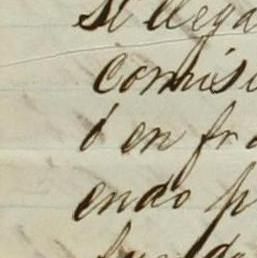 Si llega
Comisi
ó en fra
endo p